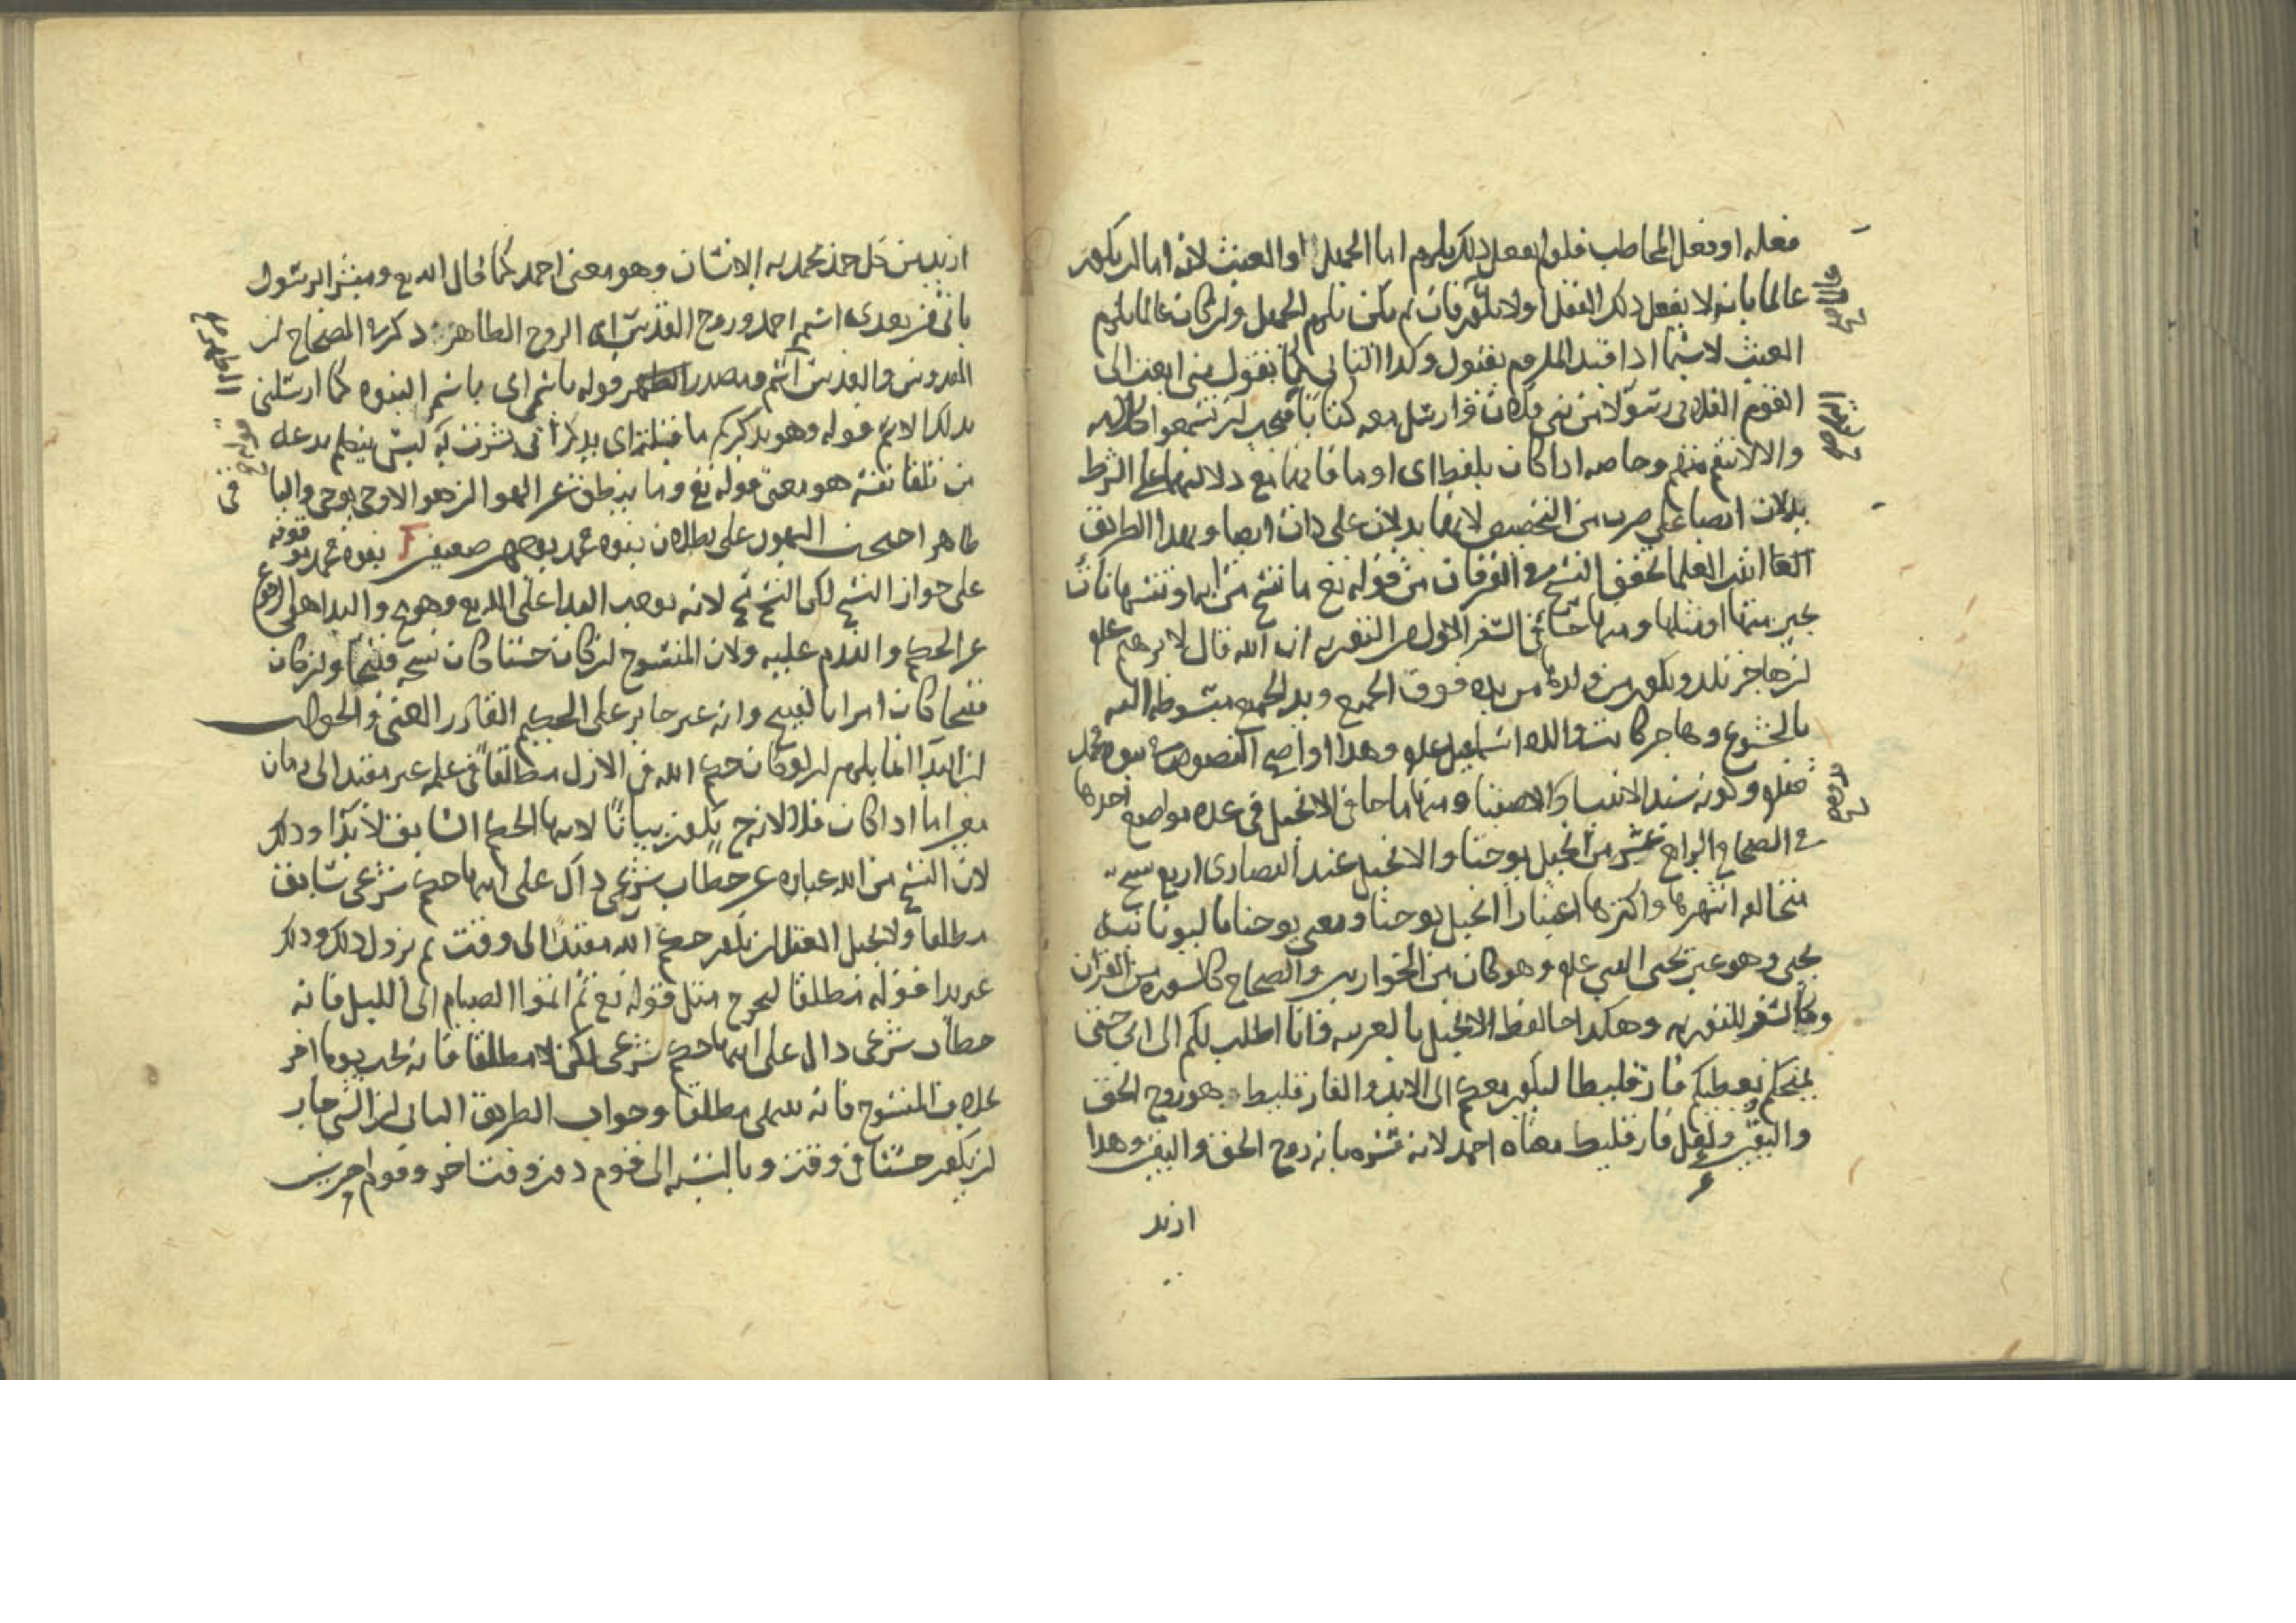 فعله او فعل المخاطب فلو لم يفعل ذلك يلزم اما الجهل او العبث لانه اما ان يكون
عالما بانه لا يفعل ذلك الفعل او لا يكون فان لم يكن يلزم الجهل وان كان عالما يلزم
العبث لا سيما اذا قيد الملزوم بقيود وكذا الثاني كما يقول مني ابعث الى
القوم الفلاني رسولا من بني فلان وارسل معه كتابا فيجب ان تسمعوا كلامه
والا لانتقم منهم وخاصة اذا كان بلفظ اى او ما فانهما مع دلالتهما على الشرط
يدلان ايضا على ضرب من التخصيص لانهما يدلان على ذات ايضا وبهذا الطريق
اثبت العلما تحقق النسخ في القرآن من قوله تع ما ننسخ من اية او ننسها نأت
بخير منها او مثلها ومنها ما جا في السفر الاول من التورية ان الله قال لابرهيم علم
ان هاجر تلد ويكون من ولدها من يده فوق الجميع ويد الجميع مبسوطة اليه
بالخشوع وهاجر كانت والدة اسمعيل علم وهذا اوضح النصوص في نبوة محمد
صلم وكونه سيد الانبيا والاصفيا ومنها ما جا في الانجيل في عدة مواضع احدها
في الصحاح الرابع عشر من انجيل يوحنا والانجيل عند النصارى اربع نسخ
متخالفة اشهرها واكثرها اعتبارا انجيل يوحنا ومعنى يوحنا باليونانية
يحيى وهو غير يحيى النبي علم وهو كان من الحواريين والصحاح كالسورة من القرآن
وكالسفر للتورية وهكذا جا لفظ الانجيل بالعربية فانا اطلب لكم الى ابي حتى
يمنحكم ويعطيكم فارقليطا ليكون معكم الى الابد والفارقليط هو روح الحق
واليقين وقيل فارقليط معناه احمد لانه فسره بانه روح الحق واليقين وهذا
ازيد
ازيد من كل حمد يحمد به الانسان وهو معنى احمد كما قال الله تع ومبشرا برسول
ياتي من بعدي اسمه احمد وروح القدس اى الروح الطاهر ذكر في الصحاح ان
القدوس والقدس اسم ومصدر قوله باسمي اى باسم النبوة كما ارسلني
بذلك الاسم قوله وهو يذكركم ما قلته اى يذكر اني بشرت به ليس ينطق بدعة
من تلقا نفسه هو معنى قوله تع وما ينطق عن الهوى ان هو الا وحي يوحى والباقي
ظاهر احتجت اليهود على بطلان نبوة محمد بوجهين ضعيفين نبوة محمد موقوفة
على جواز النسخ لكن النسخ مح لانه يوجب البدا على الله تع وهو مح والبدا هو الرجوع
عن الحكم والندم عليه ولان المنسوخ ان كان حسنا كان نسخه قبيحا وان كان
قبيحا كان امرا بالقبيح وانه غير جايز على الحكيم القادر الغني والجواب
ان البدا انما يلزم ان لو كان حكم الله في الازل مطلقا في علمه غير مقيد الى زمان
معين اما اذا كان فلا لانه ح يكون بيانا لانتها الحكم السابق لا بدا وذلك
لان النسخ من الله عبارة عن خطاب شرعي دال على انتها حكم شرعي سابق
مطلقا ولا يحيل العقل ان يكون حكم الله مقيدا الى وقت ثم يزول ذلك وذلك
غير بدا قوله مطلقا ليخرج مثل قوله تع ثم اتموا الصيام الى الليل فانه
خطاب شرعي دال على انتها حكم شرعي لكن لا مطلقا فانه يجب يوما اخر
بخلاف المنسوخ فانه ينتهي مطلقا وجواب الطريق الثاني ان الشي جاز
ان يكون حسنا في وقت وبالنسبة الى قوم دون وقت اخر وقوم اخرين